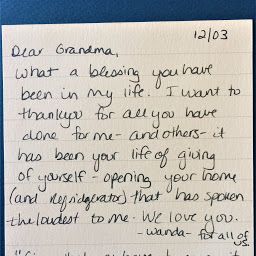 12/03
Dear Grandma,
What a blessing you have
been in my life. I want to
thankyou for all you have
done for me - and others - it
has been your life of giving
of yourself - opening your home
(and refridgerator) that has spoken
the loudest to me. We love you.
- Wanda - for all of
us.